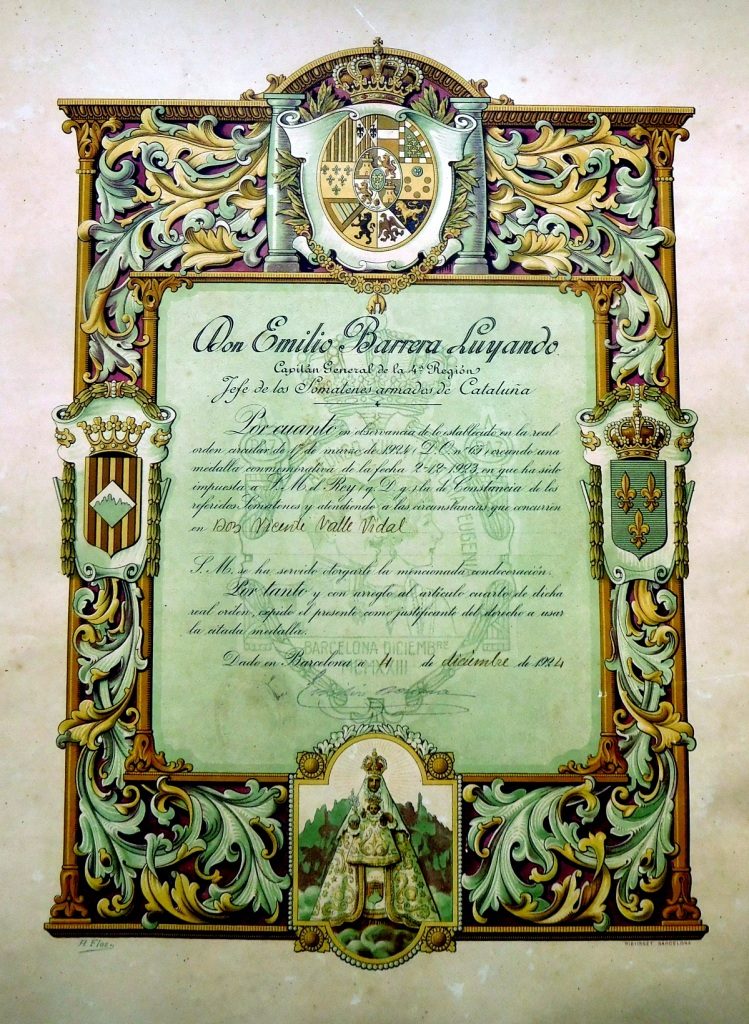 Don Emilio Barrera Luyando
Capitán General de la 4ª Región
Jefe de los Somatenes armados de Cataluña
Por cuanto en observancia de lo establecido en la real
orden circular de 17 de marzo de 1924 (D.O. nº 65) creando una
medalla conmemorativa de la fecha 2-12-1923, en que ha sido
impuesta a S. M. el Rey (q. D. g.) la de Constancia de los
referidos Somatenes y atendiendo a las circunstancias que concurren
en Don Vicente Valle Vidal
S. M. se ha servido otorgarle la mencionada condecoración.
Por tanto y con arreglo al artículo cuarto de dicha
real orden, expido el presente como justificante del derecho a usar
la citada medalla.
BARCELONA DICIEMBRE
MCMXXIII
Dado en Barcelona a 4 de diciembre de 1924